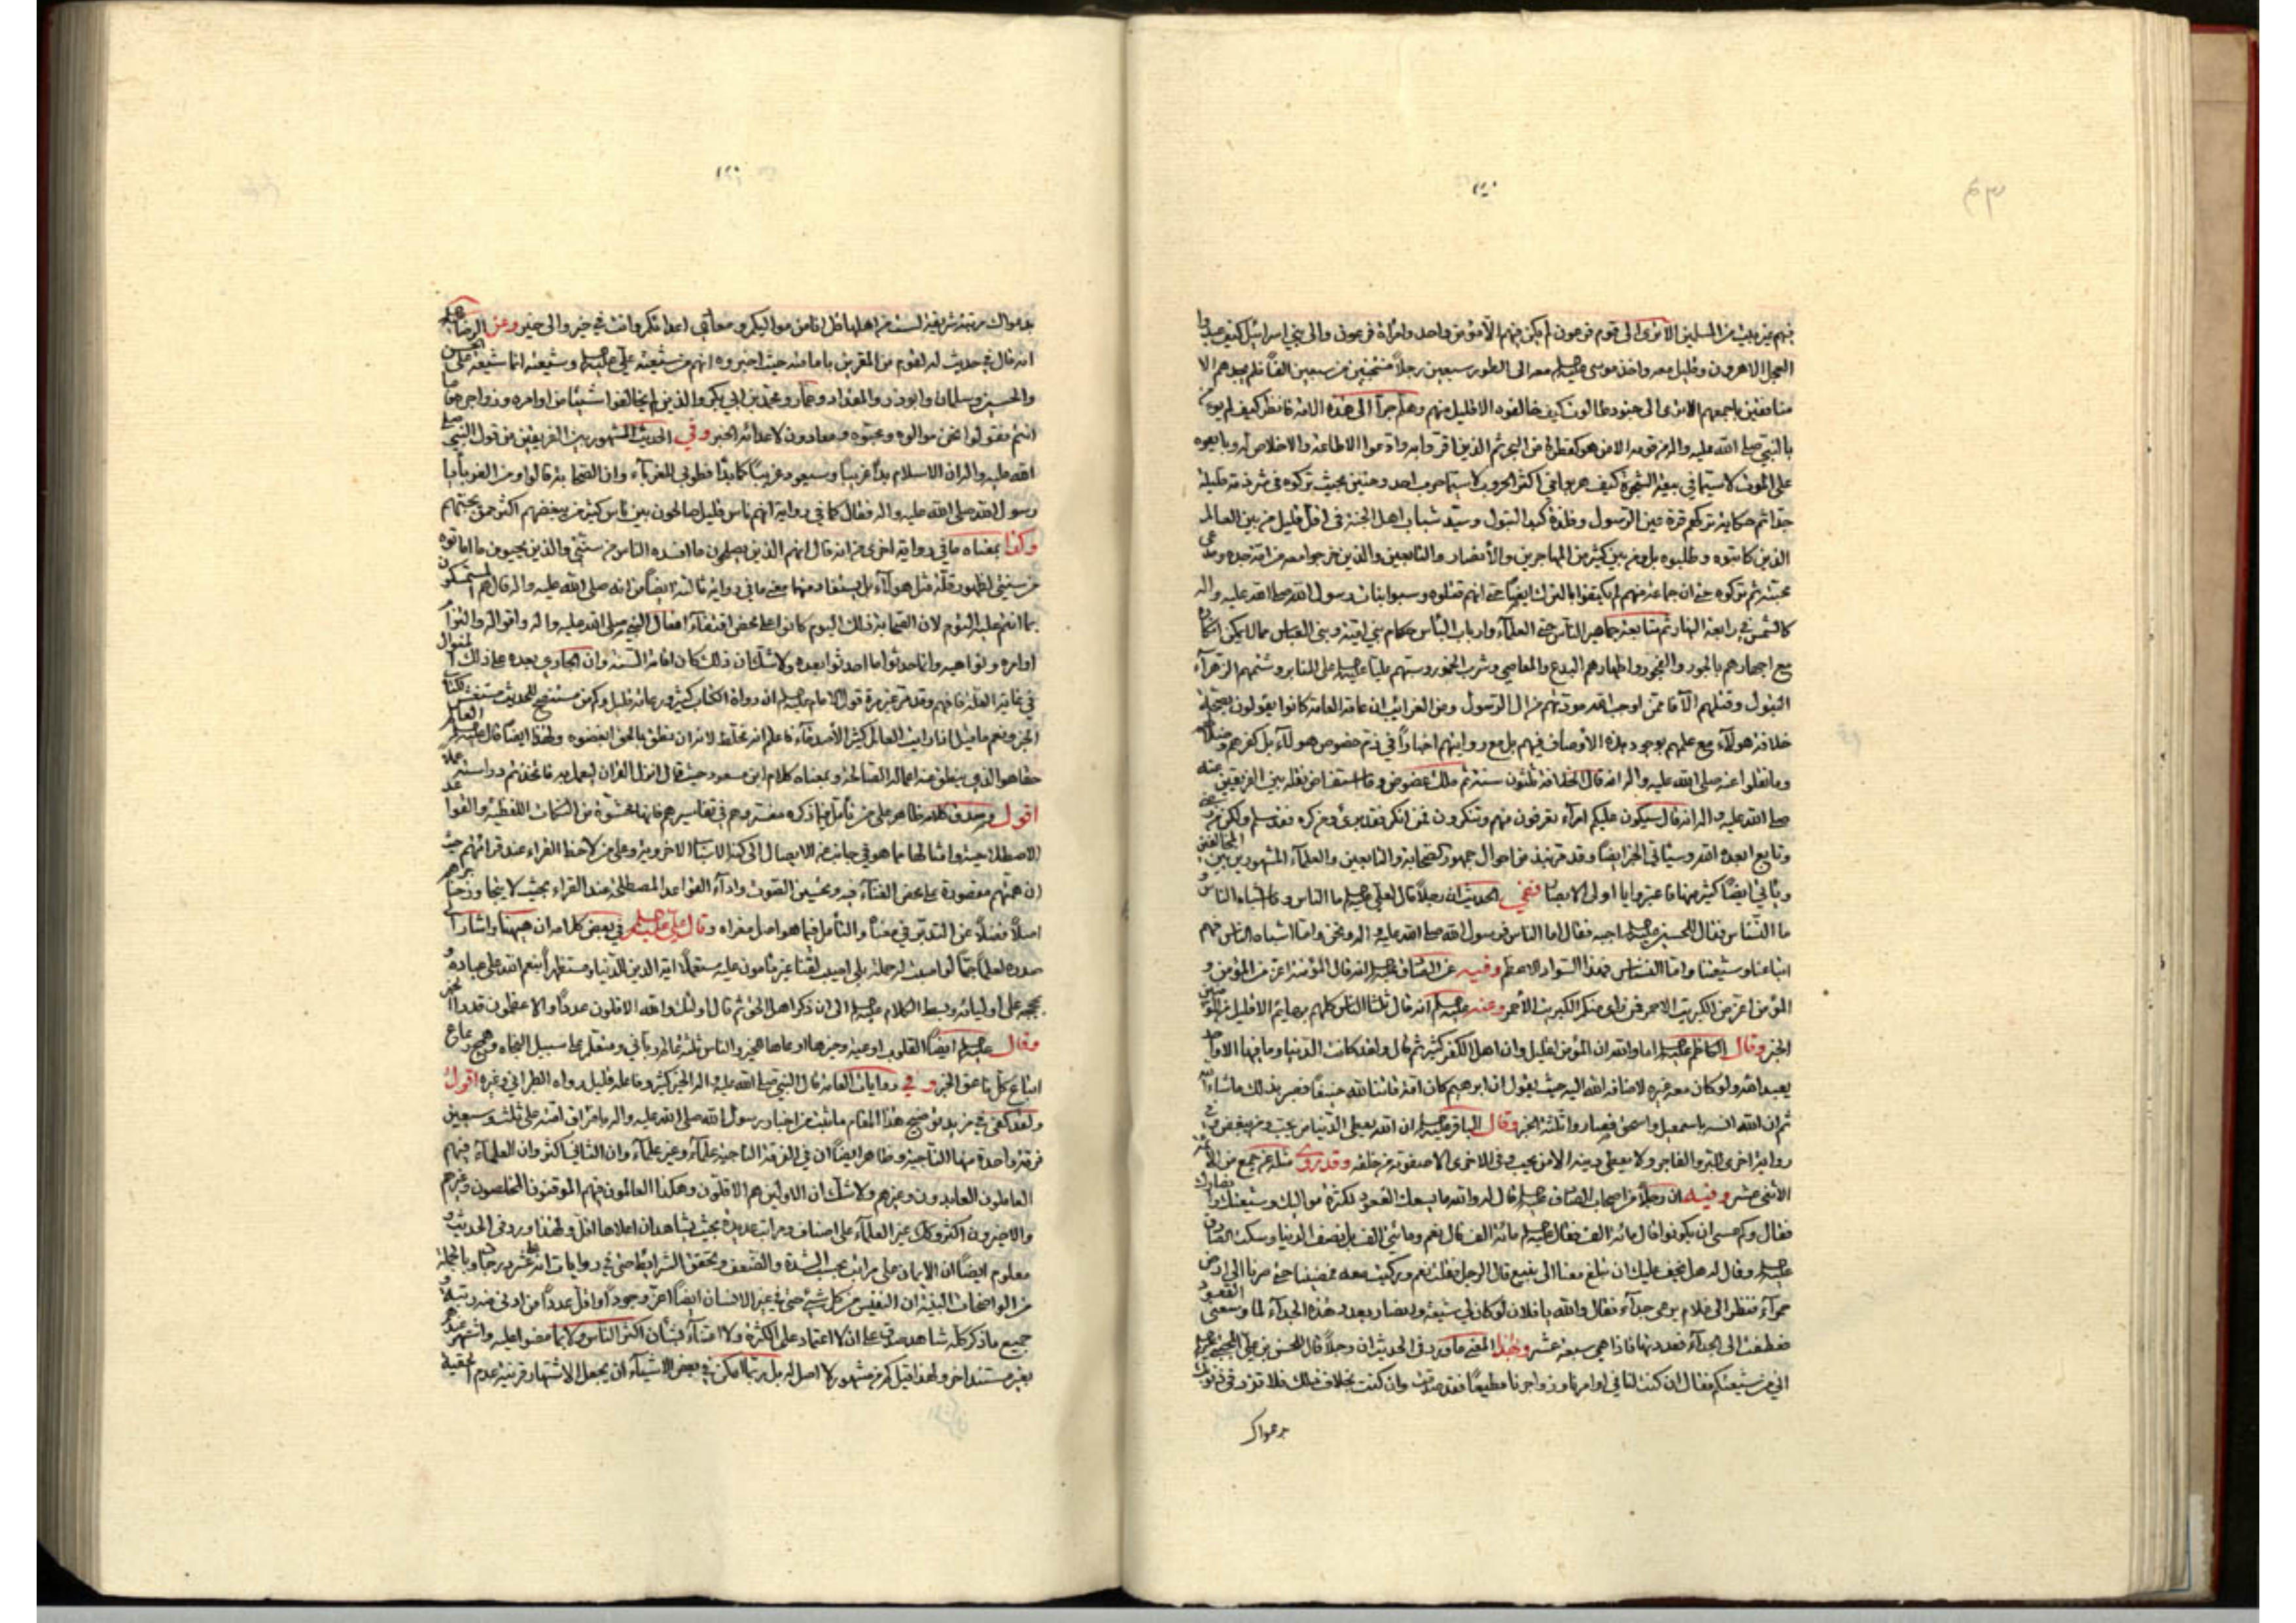 فيهم غير بيت من المسلمين الا ترى الى قوم فرعون لم يكن فيهم الا مؤمن واحد وامراة فرعون والى بني اسرائيل كيف عبدوا
العجل الا هرون وقليل معه واخذ موسى عليه السلم معه الى الطور سبعين رجلاً منتخبين من سبعين الفاً فلم يجدهم الا
منافقين باجمعهم الا ترى الى جنود طالوت كيف خالفوه الا قليل منهم وهلم جراً الى هذه الامة فانظر كيف لم يؤمن
بالنبي صلى الله عليه واله من قومه الا من هو كقطرة من اليم ثم الذين اقروا به وادعوا الاطاعة والاخلاص له وبايعوه
على الموت لا سيما في بيعة الشجرة كيف هربوا في اكثر الحروب لا سيما حرب احد وحنين بحيث تركوه في شرذمة قليلة
جداً ثم حكاية تركهم قرة عين الرسول وفلذة كبد البتول وسيد شباب اهل الجنة في اقل قليل من بين العالم
الذين كاتبوه وطلبوه بل ومن بين كثير من المهاجرين والأنصار والتابعين والذين خرجوا معه من امة جده ومدعي
محبته ثم تركوه حتى ان جماعة منهم لم يكتفوا بالترك ايضاً حتى انهم قتلوه وسبوا بنات رسول الله صلى الله عليه واله
كالشمس في رابعة النهار ثم متابعة جماهير الناس حتى العلمآء وارباب البأس حكام بني امية وبني العباس مما لا يمكن انكاره
مع اجهارهم بالجور والفجور واظهارهم البدع والمعاصي وشرب الخمور وسبهم علياً عليه السلم على المنابر وشتمهم الزهرآء
البتول وقتلهم الآفا ممن اوجب الله مودتهم من ال الرسول ومن الغرايب ان عامة العامة كانوا يقولون بصحة
خلافة هولآء مع علمهم بوجود هذه الأوصاف فيهم بل مع روايتهم اخباراً في ذم خصوص هولآء بل كفرهم وضلالهم
وما نقلوا عنه صلى الله عليه واله انه قال الخلافة ثلثون سنة ثم ملك عضوض وقد استفاض نقله بين الفريقين عنه
صلى الله عليه واله انه قال سيكون عليكم امرآء تعرفون منهم وتنكرون فمن انكر فقد برئ ومن كره فقد سلم ولكن من رضي
وتابع ابعده الله وسياتي الخبر ايضاً وقد مر نبذ من احوال جمهور الصحابة والتابعين والعلمآء المشهورين بين المخالفين
ويأتي ايضاً كثير منها فاعتبروا يا اولى الابصار ففي الحديث ان رجلاً قال لعلي عليه السلم ما الناس وما اشباه الناس و
ما النسناس فقال للحسين عليه السلم اجبه فقال اما الناس فرسول الله صلى الله عليه واله ونحن واما اشباه الناس فهم
اتباعنا وشيعتنا واما النسناس فهذا السواد الاعظم وفيه عن الصادق عليه السلم انه قال المؤمنة اعز من المؤمن و
المؤمن اعز من الكبريت الاحمر فمن راى منكم الكبريت الأحمر وعنه عليه السلم انه قال ثلثا الناس كلهم بهايم الا قليل من المؤمنين
الخبر وقال الكاظم عليه السلم اما والله ان المؤمن لقليل وان اهل الكفر كثير ثم قال ولقد كانت الدنيا وما فيها الا واحد
يعبد الله ولو كان معه غيره لاضافه الله اليه حيث يقول ان ابرهيم كان امة قانتا لله حنيفاً فصبر بذلك ماشاء الله
ثم ان الله انسه باسمعيل واسحق فصاروا ثلثة الخبر وقال الباقر عليه السلم ان الله يعطي الدنيا من يحب ومن يبغض وفي
رواية اخرى للبر والفاجر ولا يعطي دينه الا من يحب وفي الاخرى الا صفوته من خلقه وقد روى مثله عن جمع من الأئمة
الأثنى عشر وفيه ان رجلاً من اصحاب الصادق عليه السلم قال له والله ما يسعك القعود لكثرة مواليك وشيعتك وانصارك
فقال وكم عسى ان يكونوا قال مائة الف فقال عليه السلم مائة الف قال نعم ومائتي الف بل نصف الدنيا وسكت الصادق
عليه السلم وقال له هل يخف عليك ان تبلغ معنا الى ينبع قال الرجل فقلت نعم وركبت معه فمضينا حتى صرنا الى ارض
حمرآء فنظر الى غلام يرعى جدآء فقال والله يا فلان لو كان لي شيعة وانصار بعدد هذه الجدآء لما وسعني القعود
فعطفت الى الجدآء فعددتها فاذا هي سبعة عشر وبهذا المعنى ما ورد في الحديث ان رجلاً قال للحسن بن علي المجتبى عليه السلم
اني من شيعتكم فقال ان كنت لنا في اوامرنا وزواجرنا مطيعاً فقد صدقت وان كنت بخلاف ذلك فلا تزد في ذنوبك
بدعواك
بدعواك مرتبة شريفة لست من اهلها قل انا من مواليكم ومعادي اعدائكم وانت في خير والى خير وعن الرضا عليه السلم
انه قال في حديث له لقوم من المقرين بامامته حيث اخبروه انهم من شيعة علي عليه السلم وشيعته انما شيعة علي الحسن
والحسين وسلمان وابوذر والمقداد وعمار ومحمد بن ابي بكر والذين لم يخالفوا شيئاً من اوامره وزواجره ما
انتم فقولوا نحن موالوه ومحبوه ومعادون لاعدائه الخبر وفي الحديث المشهور بين الفريقين من قول النبي صلى
الله عليه واله ان الاسلام بدأ غريباً وسيعود غريباً كما بدأ فطوبى للغربآء وان الصحابة قالوا ومن الغربآء يا
رسول الله صلى الله عليه واله فقال كما في رواية انهم ناس قليل صالحون بين ناس كثير من يبغضهم اكثر ممن يحبهم
وكذا بمعناه ما في رواية اخرى من انه قال انهم الذين يصلحون ما افسده الناس من سنتي والذين يحيون ما اماتوه
من سنتي لظهور قلة مثل هولآء بل يستفاد منها معنى ما في رواية ثالثة ايضاً من انه صلى الله عليه واله قال هم المستمسكون
بما انتم عليه اليوم لان الصحابة ذلك اليوم كانوا على محض اقتفآء افعال النبي صلى الله عليه واله واقواله والتزام
اوامره ونواهيه وانما حدثوا ما احدثوا بعده ولا شك ان ذلك كان اقامة السنة وان الجاري بعده على ذلك المنوال
في غاية القلة فافهم وقد مر غير مرة قول الامام عليه السلم ان رواة الكتاب كثير ورعاته قليل وكم من مستنصح للحديث مستغش للكتاب
الخبر ونعم ما قيل اذا رايت العالم كثير الأصدقآء فاعلم انه مخلط لانه ان نطق بالحق ابغضوه ولهذا ايضاً قال عليه السلم العالم
حقا هو الذي ينطق عنه اعماله الصالحة وبمعناه كلام ابن مسعود حيث قال انزل القران ليعمل به فاتخذتم دراسته عملا
اقول وصدق كلامه ظاهر على من تأمل فيما ذكره مفسروهم في تفاسيرهم فانها محشوة من النكات اللفظية والقواعد
الاصطلاحية وامثالها مما هو في جانب عن الايصال الى كنه الاسباب الاخروية وعلى من لاحظ القراء عند قرائتهم حيث
ان همتهم مقصورة على محض الغنآء فيه وتحسين الصوت وادآء القواعد المصطلحة عند القراء بحيث لا يتجاوز حناجرهم
اصلاً فضلاً عن التدبر في معناه والتأمل فيما هو اصل مغزاه وقال علي عليه السلم في بعض كلامه ان ههنا واشار الى
صدره لعلماً جماً لو اصبت له حملة بلى اصيب لقناً غير مأمون عليه مستعملاً الة الدين للدنيا ومستظهراً بنعم الله على عباده و
بحججه على اوليائه وبسط الكلام عليه السلم الى ان ذكر اهل الحق ثم قال اولئك والله الاقلون عدداً والاعظمون قدراً الخبر
وقال عليه السلم ايضاً القلوب اوعية وخيرها اوعاها للخير والناس ثلثة عالم رباني ومتعلم على سبيل النجاه وهمج رعاع
اتباع كل ناعق الخبر وفي روايات العامة قال النبي صلى الله عليه واله الخير كثير وفاعله قليل رواه الطبراني وغيره اقول
ولقد كفى في مزيد توضيح هذا المقام ما ثبت من اخبار رسول الله صلى الله عليه واله بافتراق امته على ثلث وسبعين
فرقة واحدة منها الناجية وظاهر ايضاً ان في الفرقة الناجية علمآء وغير علمآء وان الثاني اكثر وان العلمآء فيهم
العاملون العابدون وغيرهم ولا شك ان الاولين هم الاقلون وهكذا العالمون فيهم الموقنون المخلصون وغيرهم
والاخيرون اكثر وكذا غير العلمآء على اصناف ومراتب عديدة بحيث يشاهد ان اعلاها اقل ولهذا ورد في الحديث و
معلوم ايضاً ان الايمان على مراتب بحسب الشدة والضعف وتحقق الشرايط حتى في روايات انه عشر درجات وبالجملة
من الواضحات البينة ان النفيس من كل شيء حتى في غير الانسان ايضاً اعز وجوداً واقل عدداً من ادنى منه رتبة و
جميع ما ذكر كله شاهد صدق على ان لا اعتماد على الكثرة ولا اعتنآء بشأن اكثر الناس ولا بما مضوا عليه واشتهر عندهم
بغير مستند اخر ولهذا قيل كم من مشهور لا اصل له بل ربما امكن في بعض الاشيآء ان يجعل الاشتهار قرينة عدم الحقية